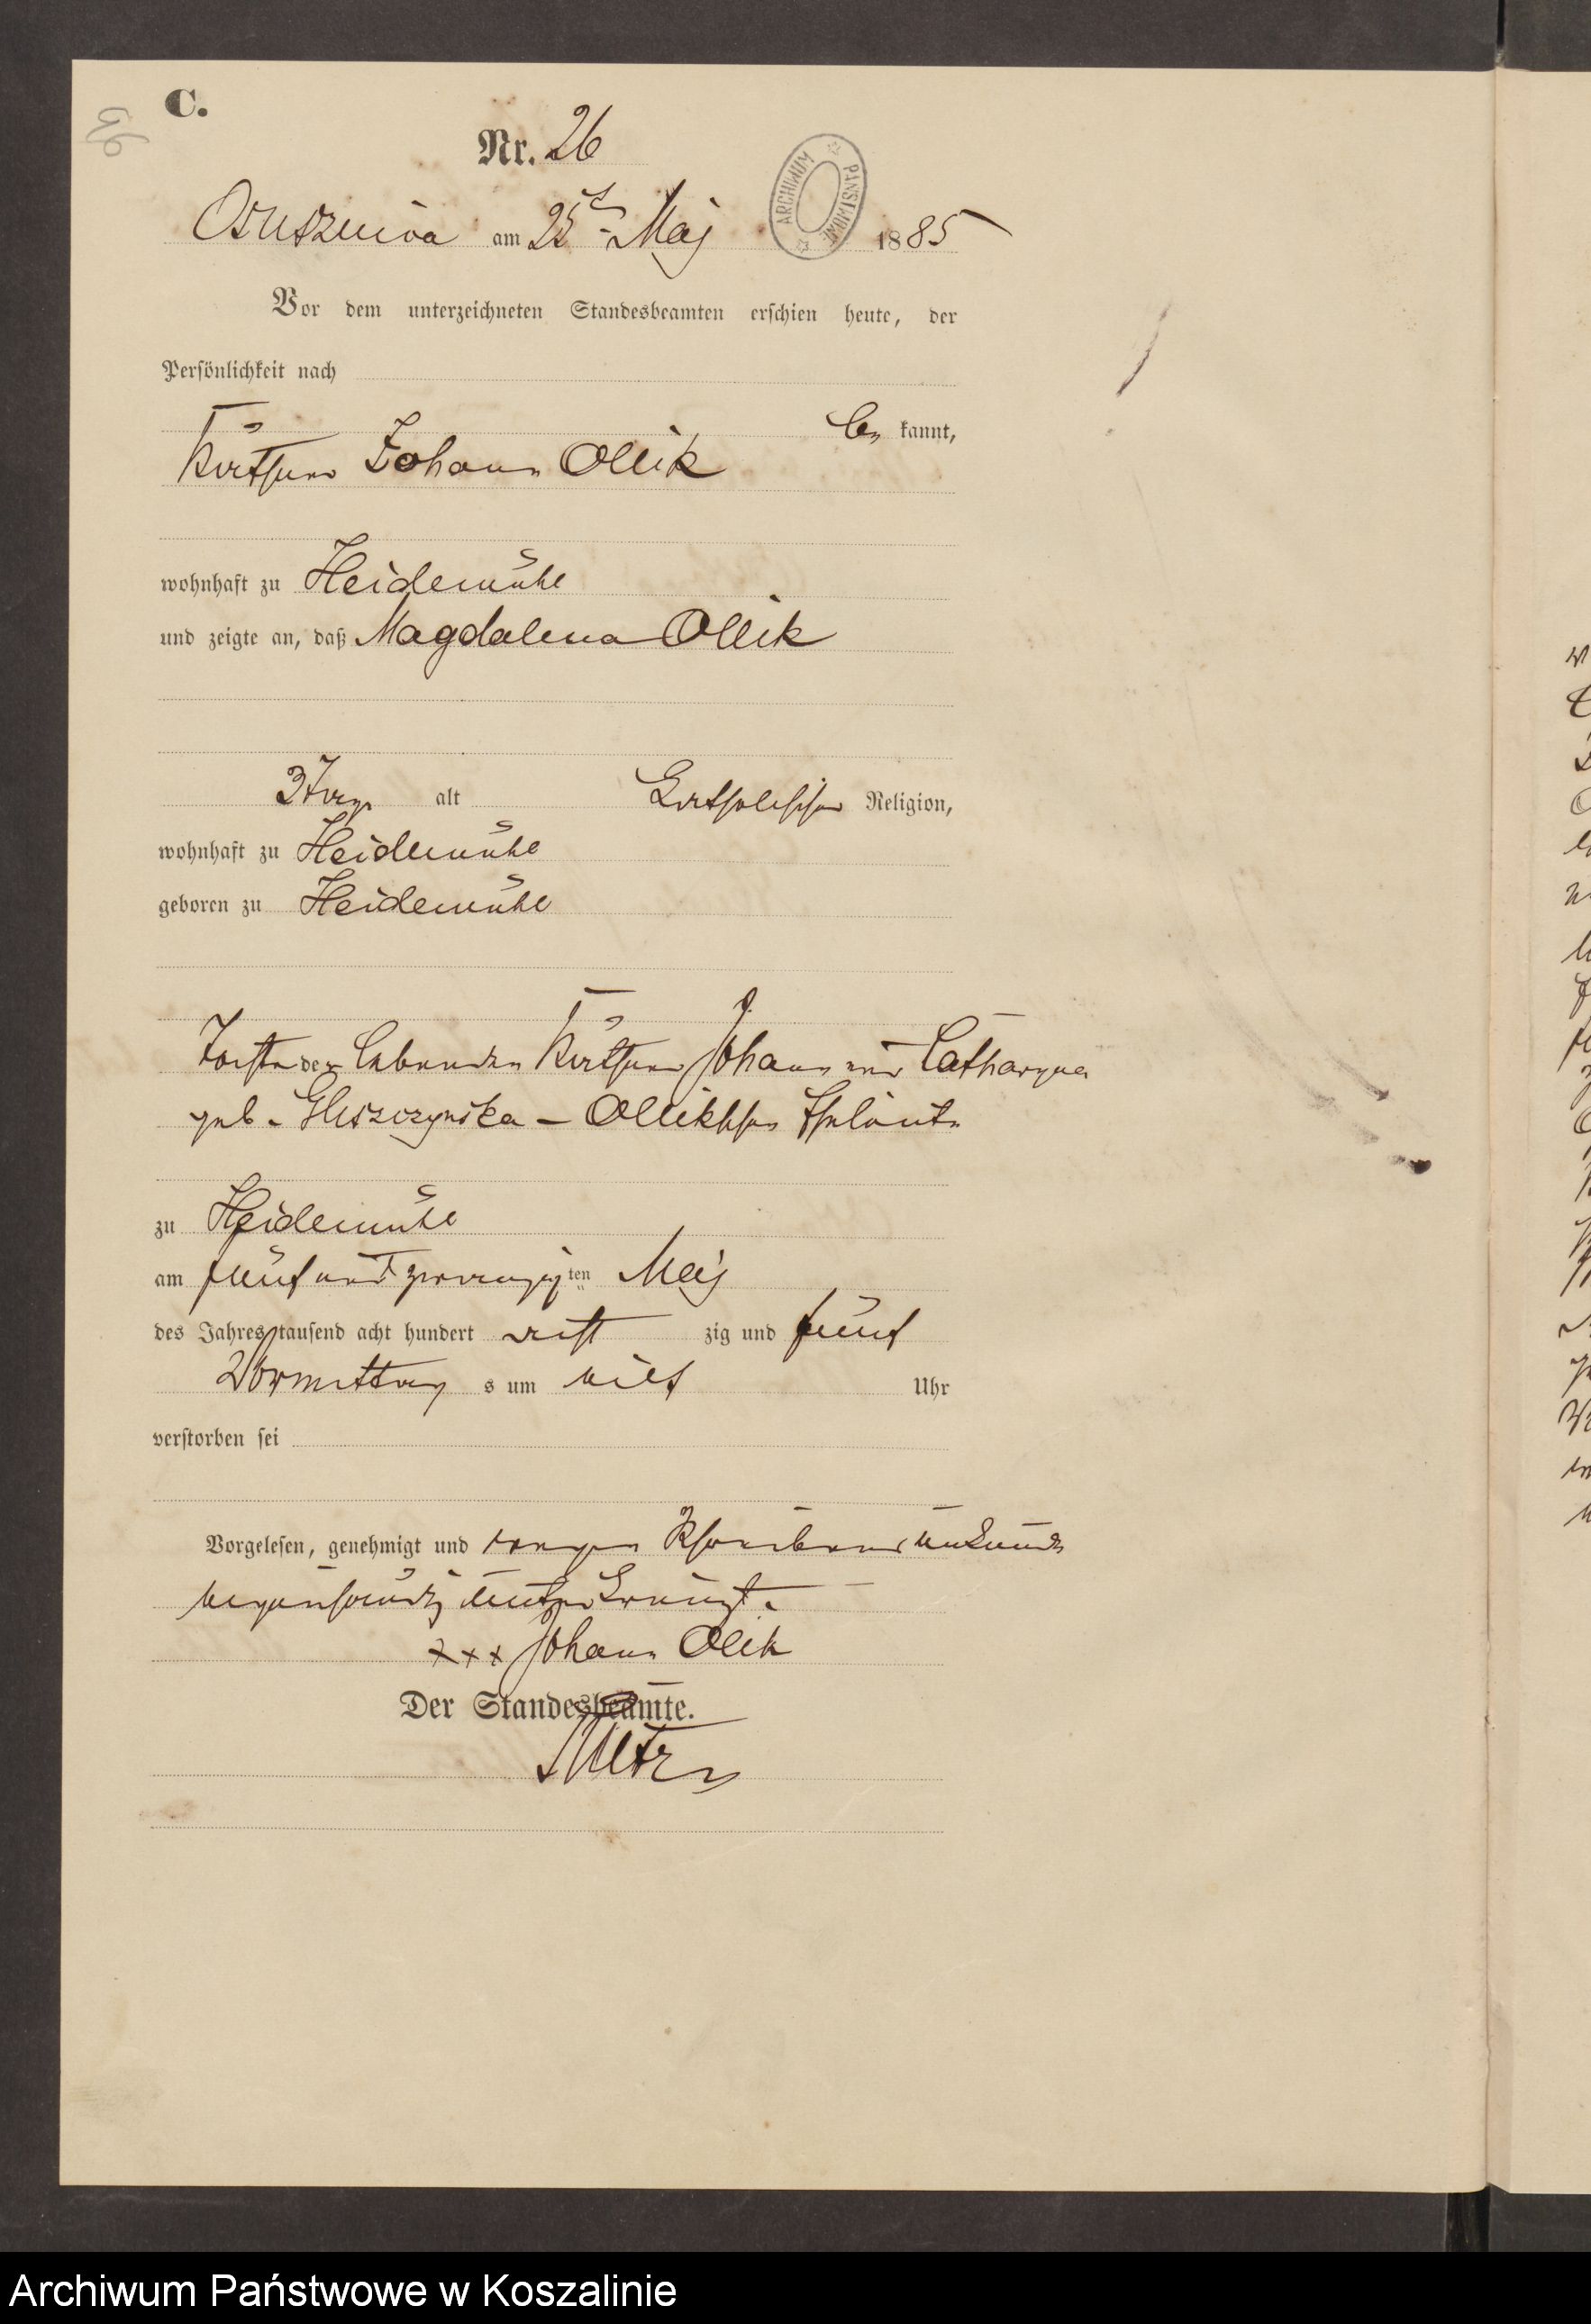 C.
Nr. 26
Osuszniza am 25t Maj 1885
ARCHIWUM PAŃSTWOWE
Vor dem unterzeichneten Standesbeamten erschien heute, der
Persönlichkeit nach
be kannt,
Käthner Johann Ollik
wohnhaft zu Heidemühl
und zeigte an, daß Magdalena Ollik
3 Tage alt Katholischer Religion,
wohnhaft zu Heidemühl
geboren zu Heidemühl
Tochter der lebenden Käthner Johann und Catharyna
geb. Gliszczynska - Ollikschen Eheleute
zu Heidemühl
am fünf und zwanzig ten Maj
des Jahres tausend acht hundert acht zig und fünf
Vormittag s um elf Uhr
verstorben sei
Vorgelesen, genehmigt und wegen Schreibens unkunde
unterkreuzt.
xxx Johann Olik
Der Standesbeamte.
Archiwum Państwowe w Koszalinie